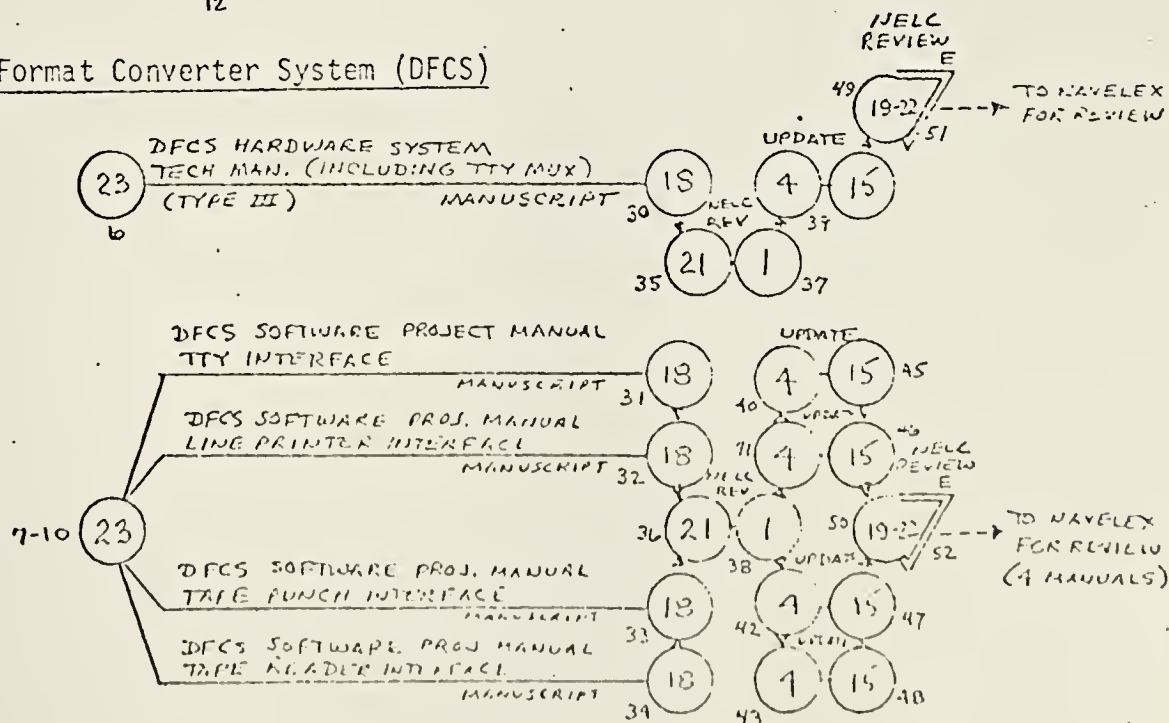 12
Format Converter System (DFCS)
NELC
REVIEW
E
49
19-22
51
TO NAVELEX
FOR REVIEW
23
6
DFCS HARDWARE SYSTEM
TECH MAN. (INCLUDING TTY MUX)
(TYPE III)
MANUSCRIPT
18
30
NELC
REV
UPDATE
4
15
39
35
21
1
37
DFCS SOFTWARE PROJECT MANUAL
TTY INTERFACE
MANUSCRIPT
18
31
UPDATE
4
15
45
40
DFCS SOFTWARE PROJ. MANUAL
LINE PRINTER INTERFACE
MANUSCRIPT
18
32
UPDATE
41
4
15
46
NELC
REVIEW
E
7-10
23
NELC
REV
36
21
1
38
50
19-22
52
TO NAVELEX
FOR REVIEW
(4 MANUALS)
DFCS SOFTWARE PROJ. MANUAL
TAPE PUNCH INTERFACE
MANUSCRIPT
18
33
UPDATE
4
15
47
42
DFCS SOFTWARE PROJ MANUAL
TAPE READER INTERFACE
MANUSCRIPT
18
34
UPDATE
4
15
48
43